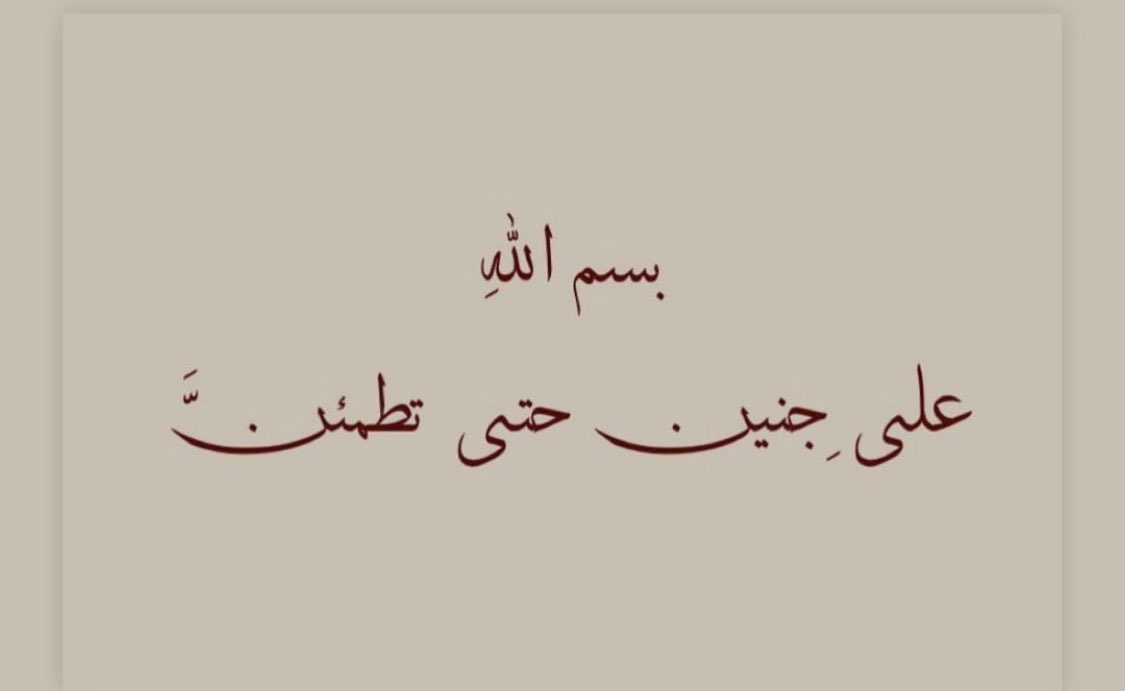 بسم اللهِ
على جِنين حتى تطمئنَّ